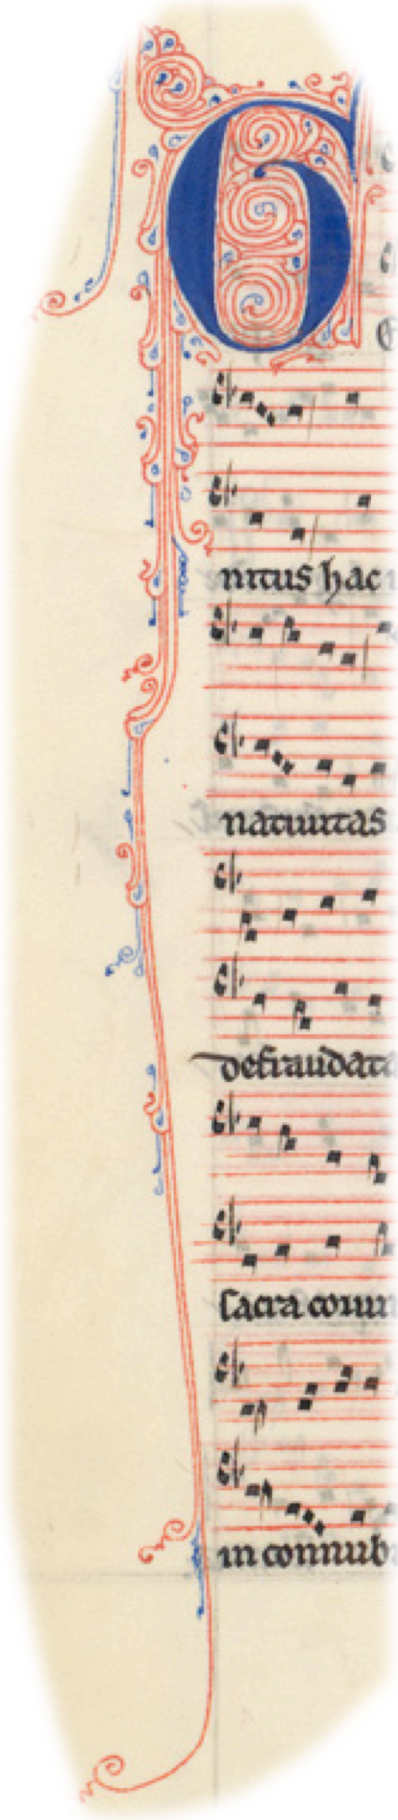 G
nitus hac
natiuitas
defraudata
sacra conu
in connub